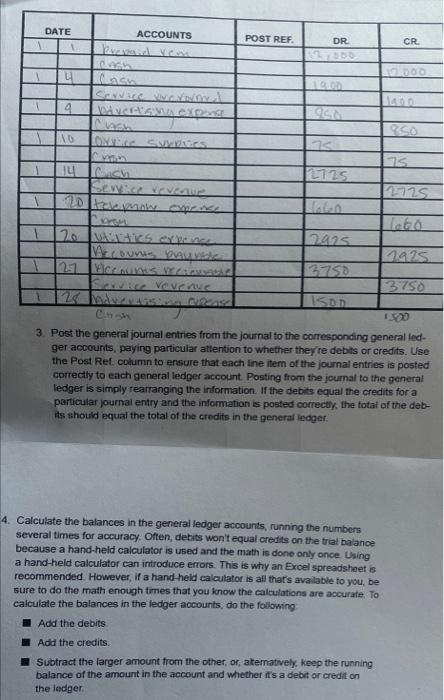 DATE ACCOUNTS POST REF. DR. CR.
1 1 Prepaid rent 12,000
Cash 12,000
1 4 Cash 1900
Service revenue 1900
1 9 Advertising expense 850
Cash 850
1 10 Office supplies 75
Cash 75
1 14 Cash 2725
Service revenue 2725
1 20 telephone expense 660
Cash 660
1 20 Utilities expense 2925
Accounts payable 2925
1 27 Accounts receivable 3750
Service revenue 3750
1 28 Advertising expense 1500
Cash 1500
3. Post the general journal entries from the journal to the corresponding general led-
ger accounts, paying particular attention to whether they're debits or credits. Use
the Post Ref. column to ensure that each line item of the journal entries is posted
correctly to each general ledger account. Posting from the journal to the general
ledger is simply rearranging the information. If the debits equal the credits for a
particular journal entry and the information is posted correctly, the total of the deb-
its should equal the total of the credits in the general ledger.
4. Calculate the balances in the general ledger accounts, running the numbers
several times for accuracy. Often, debits won't equal credits on the trial balance
because a hand-held calculator is used and the math is done only once. Using
a hand-held calculator can introduce errors. This is why an Excel spreadsheet is
recommended. However, if a hand-held calculator is all that's available to you, be
sure to do the math enough times that you know the calculations are accurate. To
calculate the balances in the ledger accounts, do the following:
■ Add the debits.
■ Add the credits.
■ Subtract the larger amount from the other, or, alternatively, keep the running
balance of the amount in the account and whether it's a debit or credit on
the ledger.